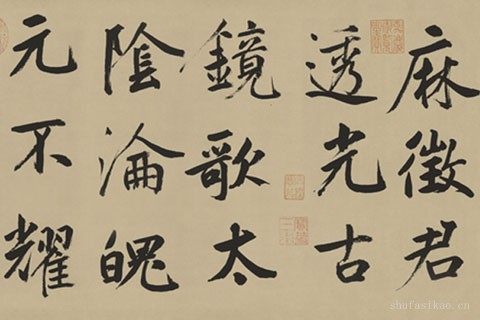 麻徵君
透光古
鏡歌太
陰淪魄
元不耀